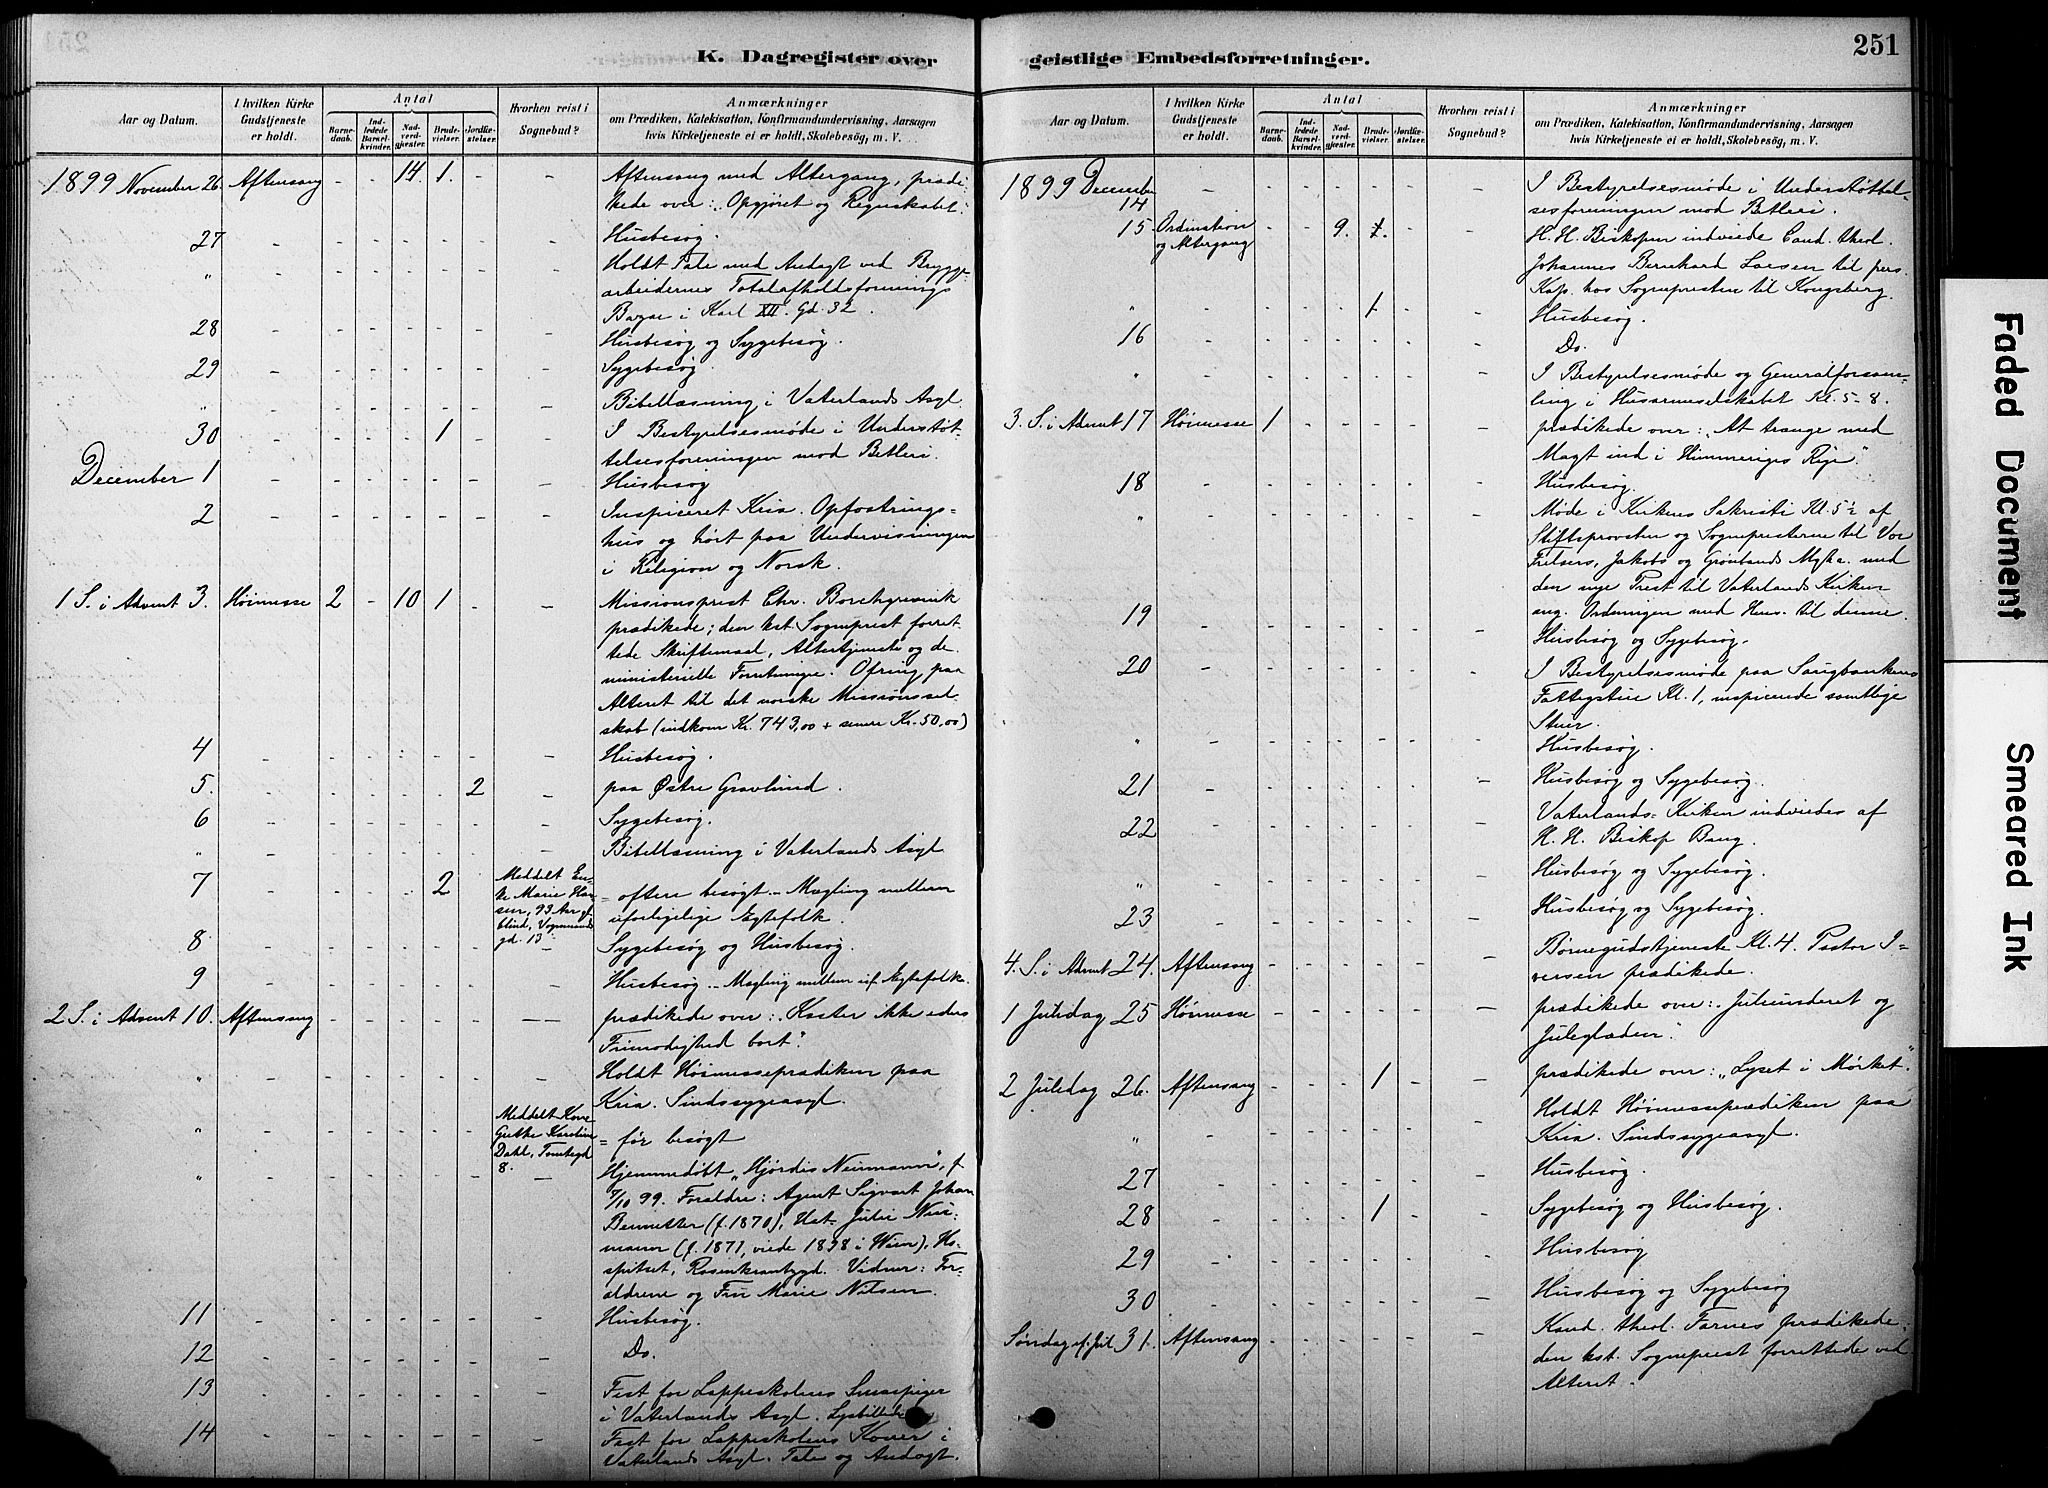 251
K. Dagregister over geistlige Embedsforretninger.
Aar og Datum.
I hvilken Kirke Gudstjeneste er holdt.
Antal
Barnedaab.
Indledede Barselkvinder.
Nadverdgjæster.
Brudevielser.
Jordfæstelser.
Hvorhen reist i Sognebud?
Anmærkninger
om Prædiken, Katekisation, Konfirmandundervisning, Aarsagen
hvis Kirketjeneste ei er holdt, Skolebesøg, m. V.
1899 November 26. Aftensang - - 14. 1. - - Aftensang med Altergang, prædi-
kede over: "Opgjøret og Regnskabet".
27 Husbesøg.
" Holdt Tale med Andagt ved Brygge-
arbeidernes Totalafholdsforenings
Bazar i Karl XII. Gd. 32.
28 Husbesøg og Sygebesøg.
29 Sygebesøg.
" Bibellæsning i Vaterlands Asyl.
30 1 I Bestyrelsesmøde i Understøt-
telsesforeningen mod Betleri.
December 1 Husbesøg
2 Inspiceret Kria. Opfostrings-
hus og hørt paa Undervisningen
i Religion og Norsk.
1 S. i Advent 3. Høimesse 2 - 10 1 - - Missionsprest Chr. Borchgrevink
prædikede; den kst. Sogneprest forret-
tede Skriftemaal, Altertjeneste og de
ministerielle Forretninger. Ofring paa
Alteret til det norske Missionssel-
skab (indkom Kr. 743,00 + senere Kr. 50,00)
4 Husbesøg.
5. 2 paa Østre Gravlund.
6 Sygebesøg.
" Bibellæsning i Vaterlands Asyl
7 2 Meddelt En-
ke Marie Han-
sen, 93 Aar gl.
blind, Vognmands
gd. 13 = oftere besøgt - Mægling mellem
uforligelige Egtefolk.
8 Sygebesøg og Husbesøg.
9 Husbesøg - Mægling mellem uf. Egtefolk.
2 S. i Advent 10. Aftensang prædikede over: "Kaster ikke eders
Frimodighed bort".
" Holdt Høimesseprædiken paa
Kria. Sindssygeasyl.
" Meddelt Kone
Grethe Karoline
Dahl, Tomtegd
8. = før besøgt
" Hjemmedøbt "Hjørdis Neumann", f.
7/10 99. Forældre: Agent Sigvart Johan
(f. 1870), Hst. Julie Neu-
mann (f. 1871, viede 1898 i Wien), Ho-
spitset, Rosenkrantzgd. Vidner: For-
ældrene og Fru Marie Nilsen.
11 Husbesøg.
12 Do.
13 Fest for Lappeskolens Smaapiger
i Vaterlands Asyl. Lysbilleder
14 Fest for Lappeskolens Koner i
Vaterlands Asyl. Tale og Andagt.
Aar og Datum.
I hvilken Kirke Gudstjeneste er holdt.
Antal
Barnedaab.
Indledede Barselkvinder.
Nadverdgjæster.
Brudevielser.
Jordfæstelser.
Hvorhen reist i Sognebud?
Anmærkninger
om Prædiken, Katekisation, Konfirmandundervisning, Aarsagen
hvis Kirketjeneste ei er holdt, Skolebesøg, m. V.
1899 December
14 I Bestyrelsesmøde i Understøttel-
sesforeningen mod Betleri.
15. Ordination
og Altergang - - 9. 1. - - H. H. Biskopen indviede Cand. theol.
Johannes Bernhard Larsen til pers.
Kap. hos Sognepresten til Kongsberg.
" 1 Husbesøg.
16 Do.
" I Bestyrelsesmøde og Generalforsam-
ling i Husarmselskabet Kl. 5-8.
3. S. i Advent 17 Høimesse 1 prædikede over: "At trænge med
Magt ind i Himmeriges Rige".
18 Husbesøg.
" Møde i Kirkens Sakristi Kl. 5½ af
Stiftsprovsten og Sognepresterne til Vor
Frelsers, Jakobs og Grønlands Mgha. med
den nye Prest til Vaterlands Kirken
ang. Ordningen med Hens. til denne
19 Husbesøg og Sygebesøg.
20 I Bestyrelsesmøde paa Saugbankens
Fattigstue Kl. 1, inspicerede samtlige
Stuer.
" Husbesøg.
21 Husbesøg og Sygebesøg.
22 Vaterlands-Kirken indviedes af
H. H. Biskop Bang.
" Husbesøg og Sygebesøg.
23 Husbesøg og Sygebesøg.
4. S. i Advent 24. Aftensang Børnegudstjeneste Kl. 4. Pastor I-
versen prædikede.
1 Juledag 25 Høimesse prædikede over: "Julunderet og
Juleglæden".
2 Juledag 26. Aftensang 1 prædikede over: "Lyset i Mørket."
" Holdt Høimesseprædiken paa
Kria. Sindssygeasyl.
27 Husbesøg.
28 1 Sygebesøg og Husbesøg.
29 Husbesøg
30 Husbesøg og Sygebesøg
Søndag ef. Jul 31. Aftensang Kand. theol. Farnes prædikede.
den kst. Sogneprest forrettede ved
Alteret.
Faded Document
Smeared Ink